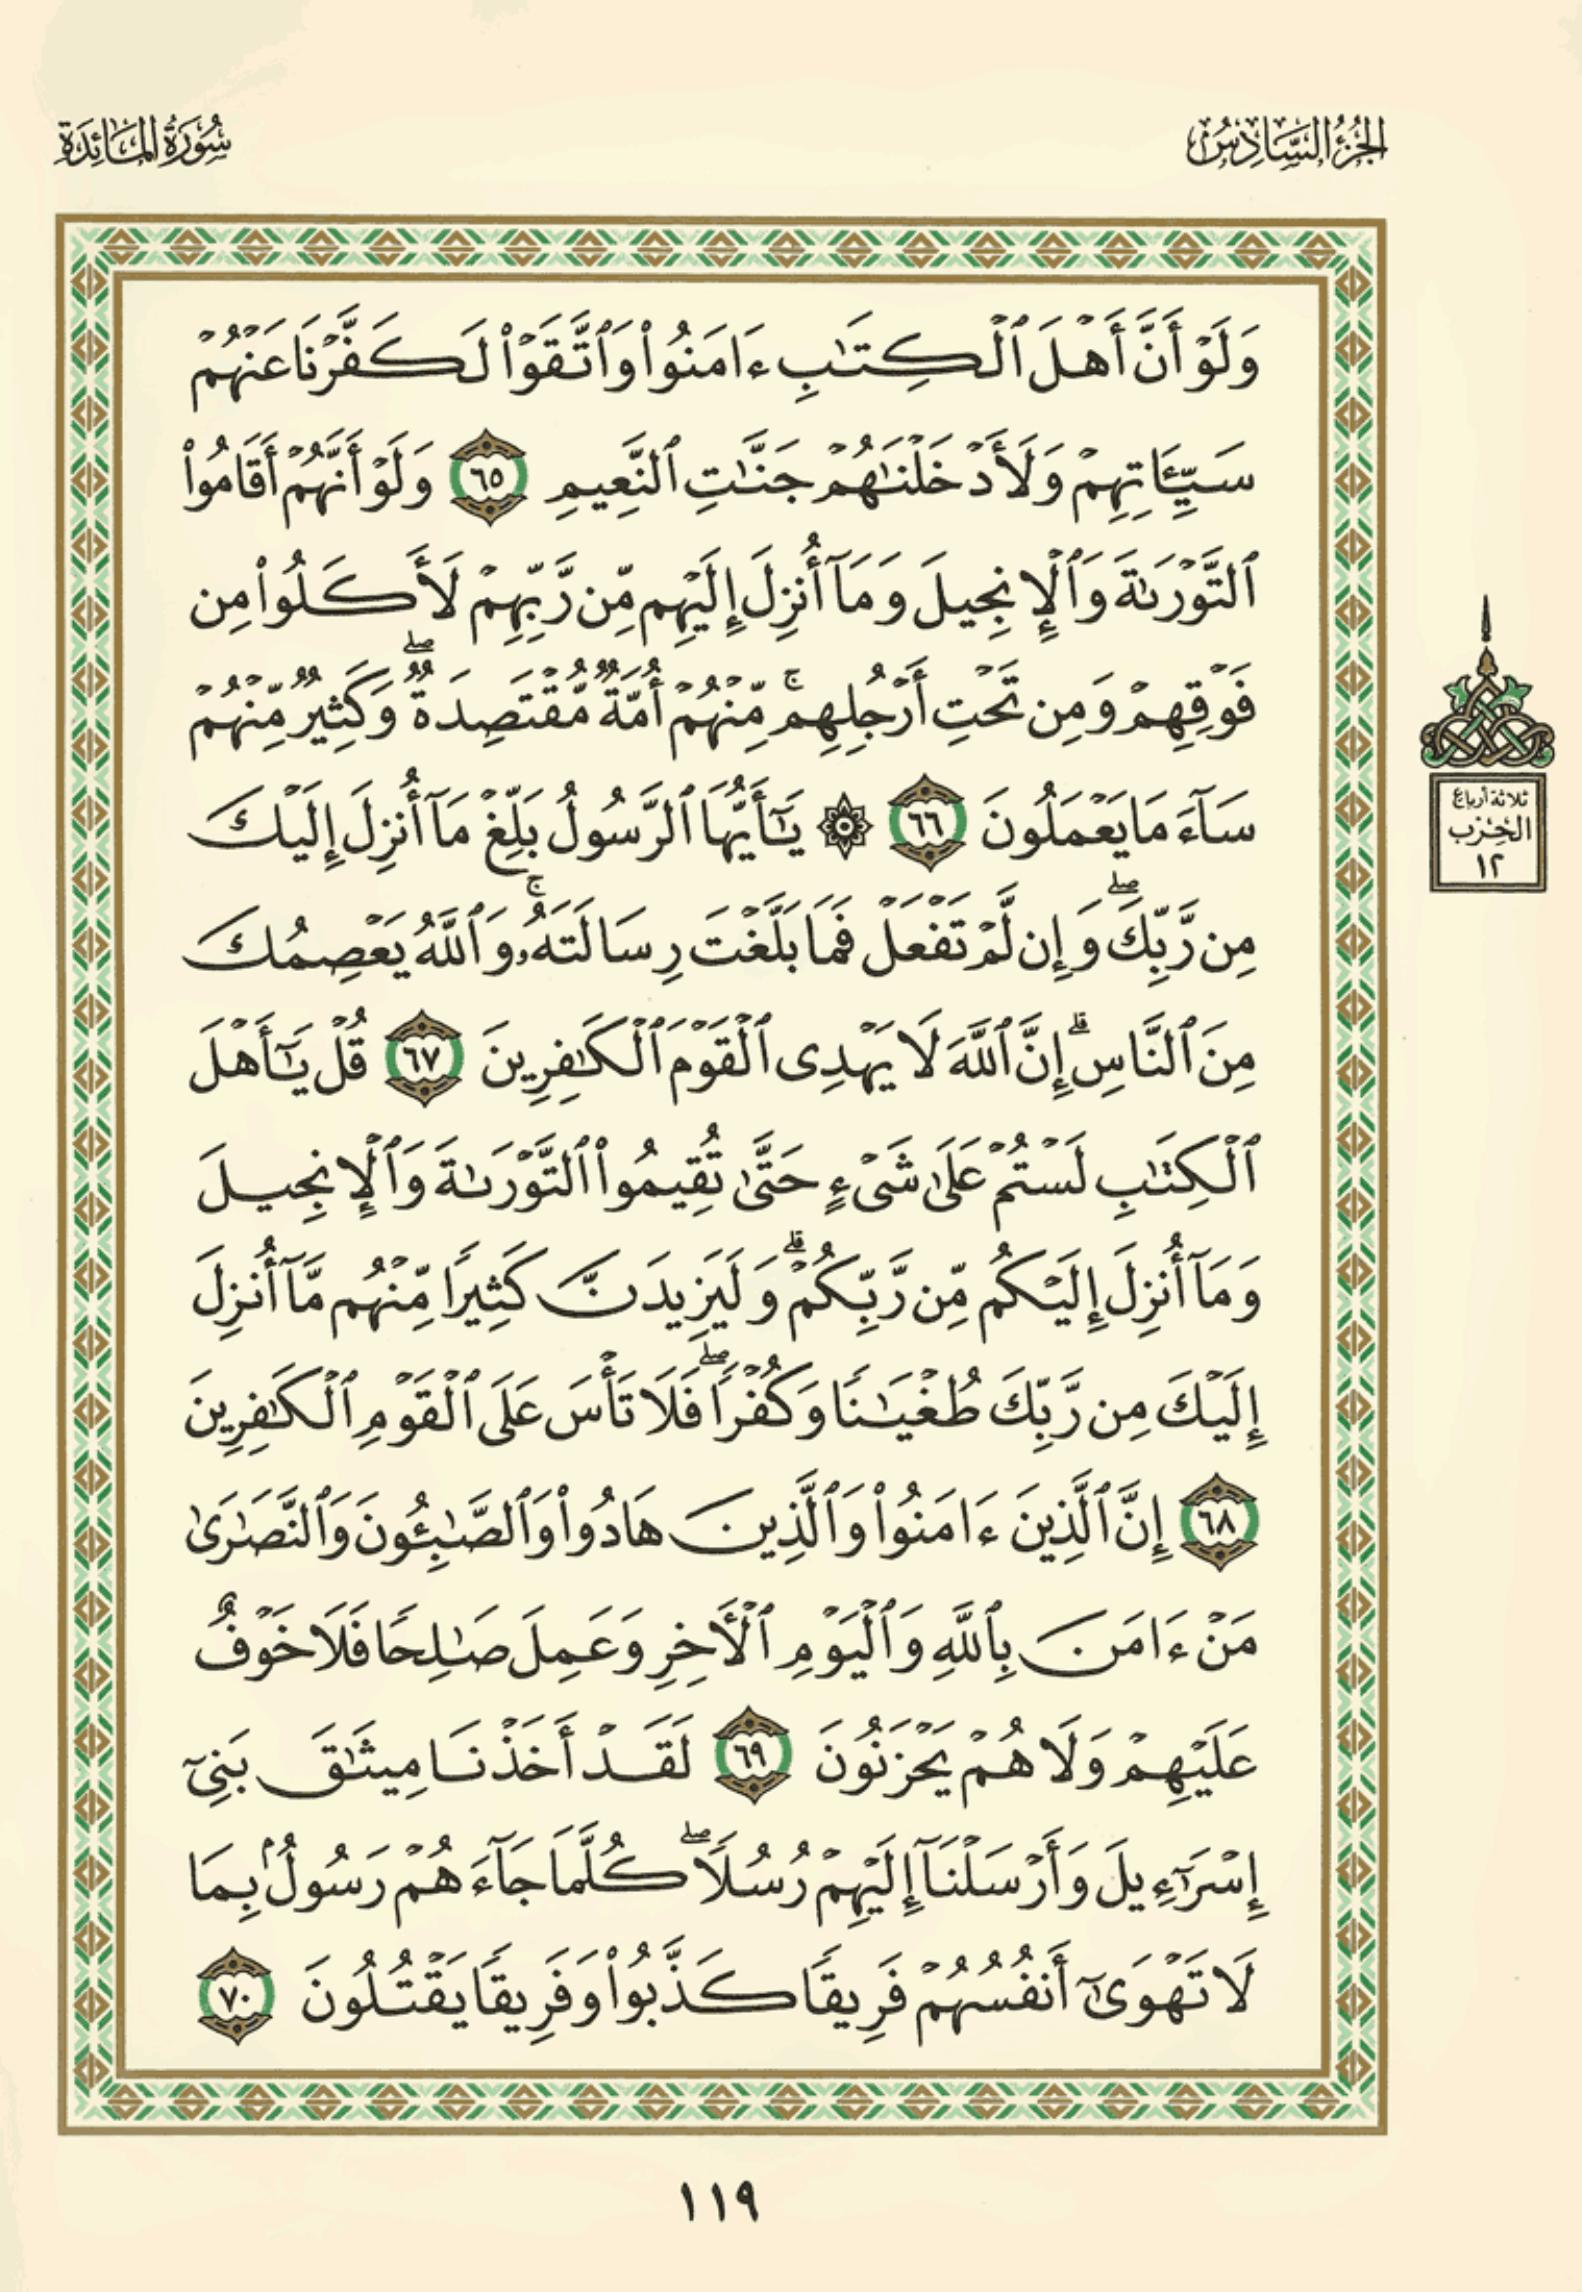 الجزء السادس
سورة المائدة
وَلَوْ أَنَّ أَهْلَ ٱلْكِتَٰبِ ءَامَنُوا۟ وَٱتَّقَوْا۟ لَكَفَّرْنَا عَنْهُمْ
سَيِّـَٔاتِهِمْ وَلَأَدْخَلْنَٰهُمْ جَنَّٰتِ ٱلنَّعِيمِ ٦٥ وَلَوْ أَنَّهُمْ أَقَامُوا۟
ٱلتَّوْرَىٰةَ وَٱلْإِنجِيلَ وَمَآ أُنزِلَ إِلَيْهِم مِّن رَّبِّهِمْ لَأَكَلُوا۟ مِن
فَوْقِهِمْ وَمِن تَحْتِ أَرْجُلِهِم ۚ مِّنْهُمْ أُمَّةٌ مُّقْتَصِدَةٌ ۖ وَكَثِيرٌ مِّنْهُمْ
سَآءَ مَا يَعْمَلُونَ ٦٦ ۞ يَٰٓأَيُّهَا ٱلرَّسُولُ بَلِّغْ مَآ أُنزِلَ إِلَيْكَ
مِن رَّبِّكَ ۖ وَإِن لَّمْ تَفْعَلْ فَمَا بَلَّغْتَ رِسَالَتَهُۥ ۚ وَٱللَّهُ يَعْصِمُكَ
مِنَ ٱلنَّاسِ ۗ إِنَّ ٱللَّهَ لَا يَهْدِى ٱلْقَوْمَ ٱلْكَٰفِرِينَ ٦٧ قُلْ يَٰٓأَهْلَ
ٱلْكِتَٰبِ لَسْتُمْ عَلَىٰ شَىْءٍ حَتَّىٰ تُقِيمُوا۟ ٱلتَّوْرَىٰةَ وَٱلْإِنجِيلَ
وَمَآ أُنزِلَ إِلَيْكُم مِّن رَّبِّكُمْ ۗ وَلَيَزِيدَنَّ كَثِيرًا مِّنْهُم مَّآ أُنزِلَ
إِلَيْكَ مِن رَّبِّكَ طُغْيَٰنًا وَكُفْرًا ۖ فَلَا تَأْسَ عَلَى ٱلْقَوْمِ ٱلْكَٰفِرِينَ
٦٨ إِنَّ ٱلَّذِينَ ءَامَنُوا۟ وَٱلَّذِينَ هَادُوا۟ وَٱلصَّٰبِـُٔونَ وَٱلنَّصَٰرَىٰ
مَنْ ءَامَنَ بِٱللَّهِ وَٱلْيَوْمِ ٱلْـَٔاخِرِ وَعَمِلَ صَٰلِحًا فَلَا خَوْفٌ
عَلَيْهِمْ وَلَا هُمْ يَحْزَنُونَ ٦٩ لَقَدْ أَخَذْنَا مِيثَٰقَ بَنِىٓ
إِسْرَٰٓءِيلَ وَأَرْسَلْنَآ إِلَيْهِمْ رُسُلًا ۖ كُلَّمَا جَآءَهُمْ رَسُولٌۢ بِمَا
لَا تَهْوَىٰٓ أَنفُسُهُمْ فَرِيقًا كَذَّبُوا۟ وَفَرِيقًا يَقْتُلُونَ ٧٠
ثلاثة أرباع
الحزب
١٢
١١٩